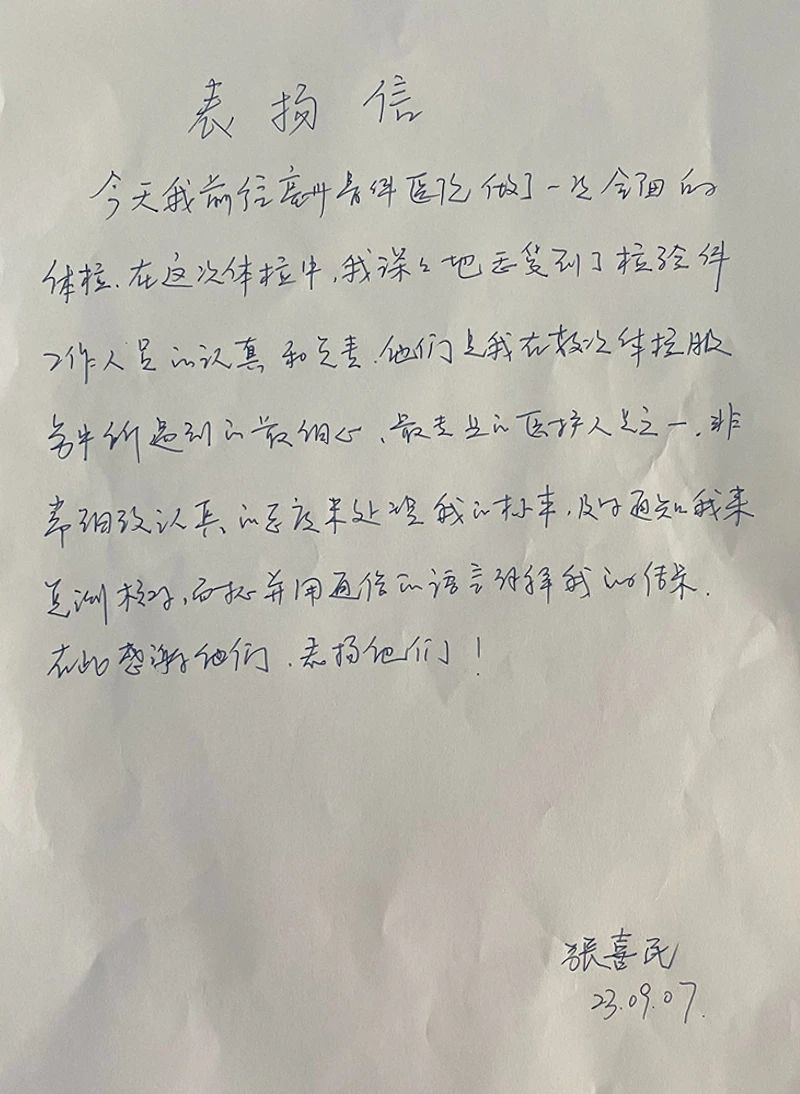 表扬信
今天我前往医院做了一次全面的
体检.在这次体检中,我深深地感受到了检验科
工作人员的认真和负责.他们是我在数次体检服
务中所遇到的最细心、最专业的医护人员之一.非
常细致认真的态度来处理我的标本,及时通知我来
复测核对,而且并用通俗的语言解释我的结果.
在此感谢他们、表扬他们!
張喜民
23.09.07.